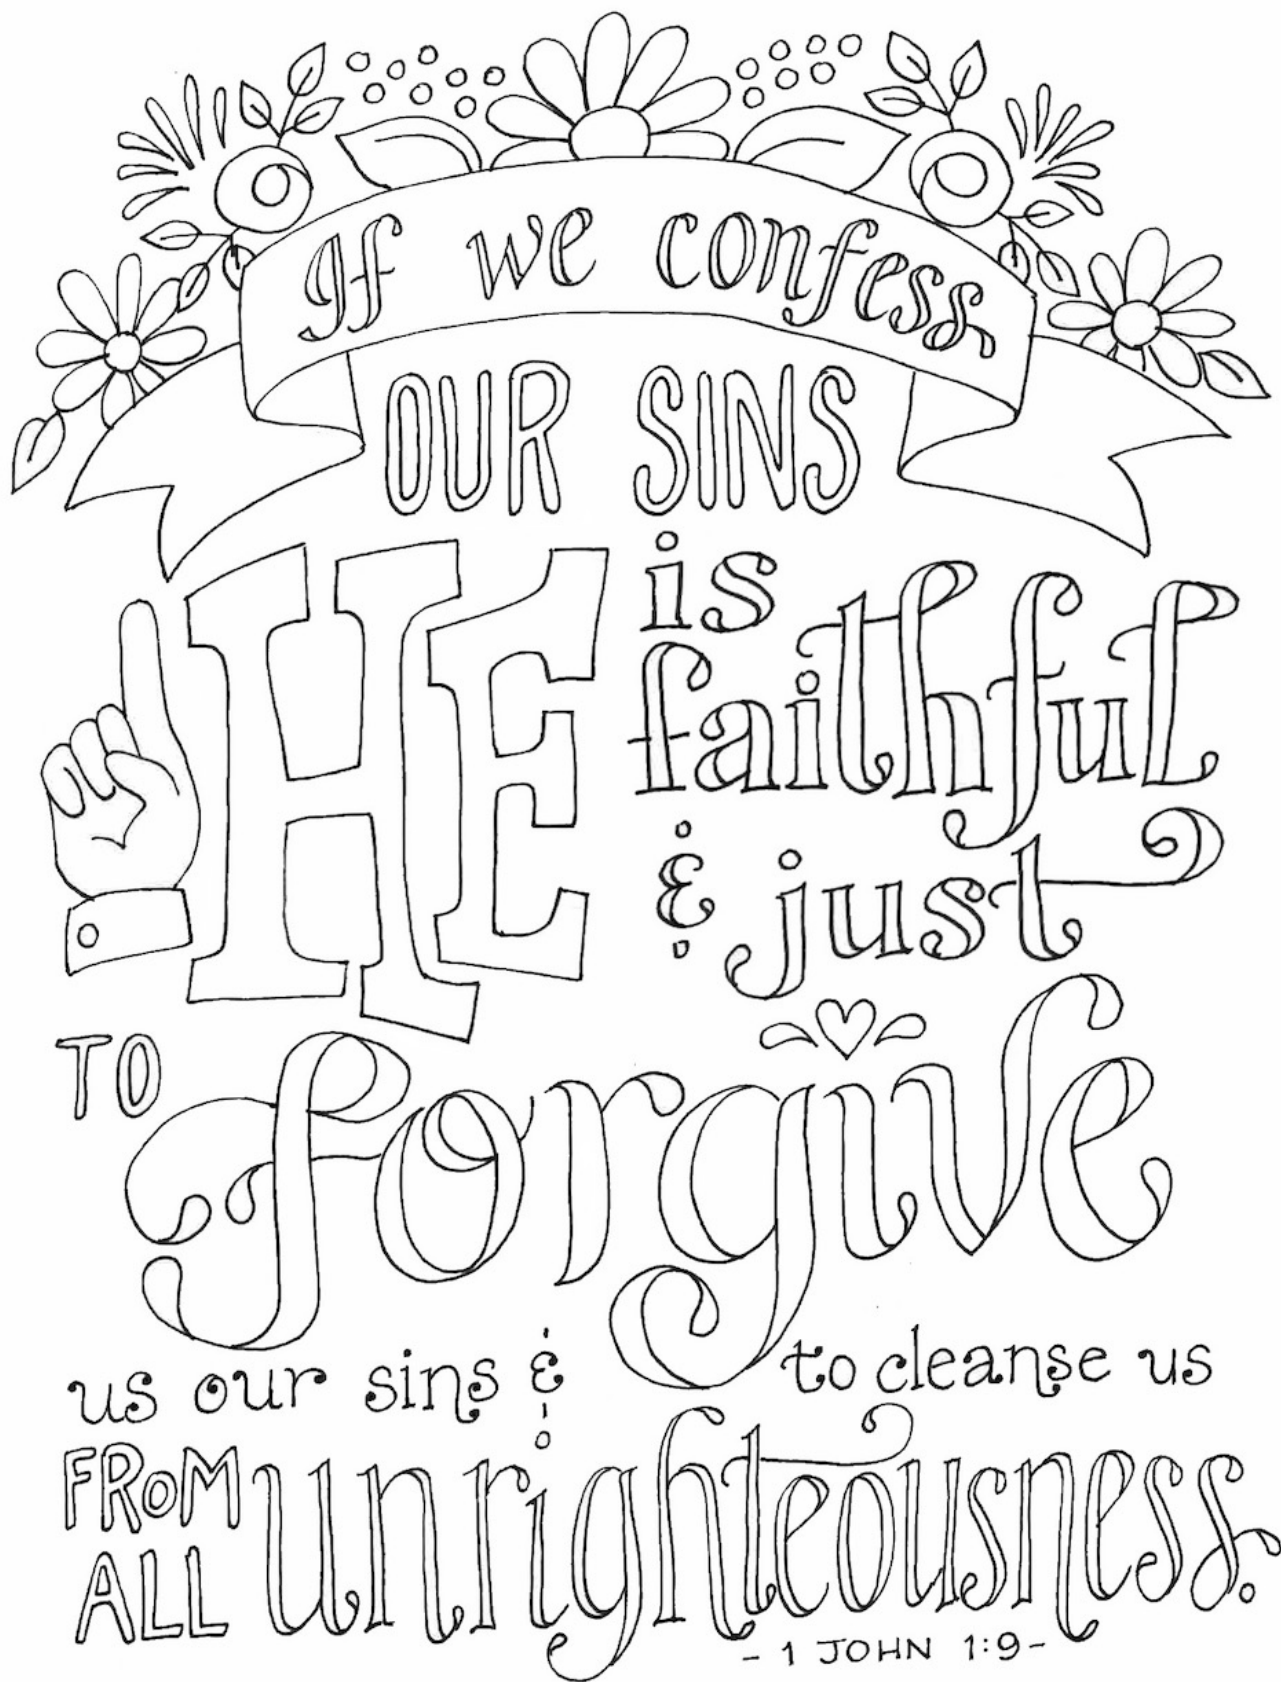 If we confess
OUR SINS
HE is
faithful
& just
TO forgive
us our sins & to cleanse us
FROM ALL unrighteousness.
- 1 JOHN 1:9 -